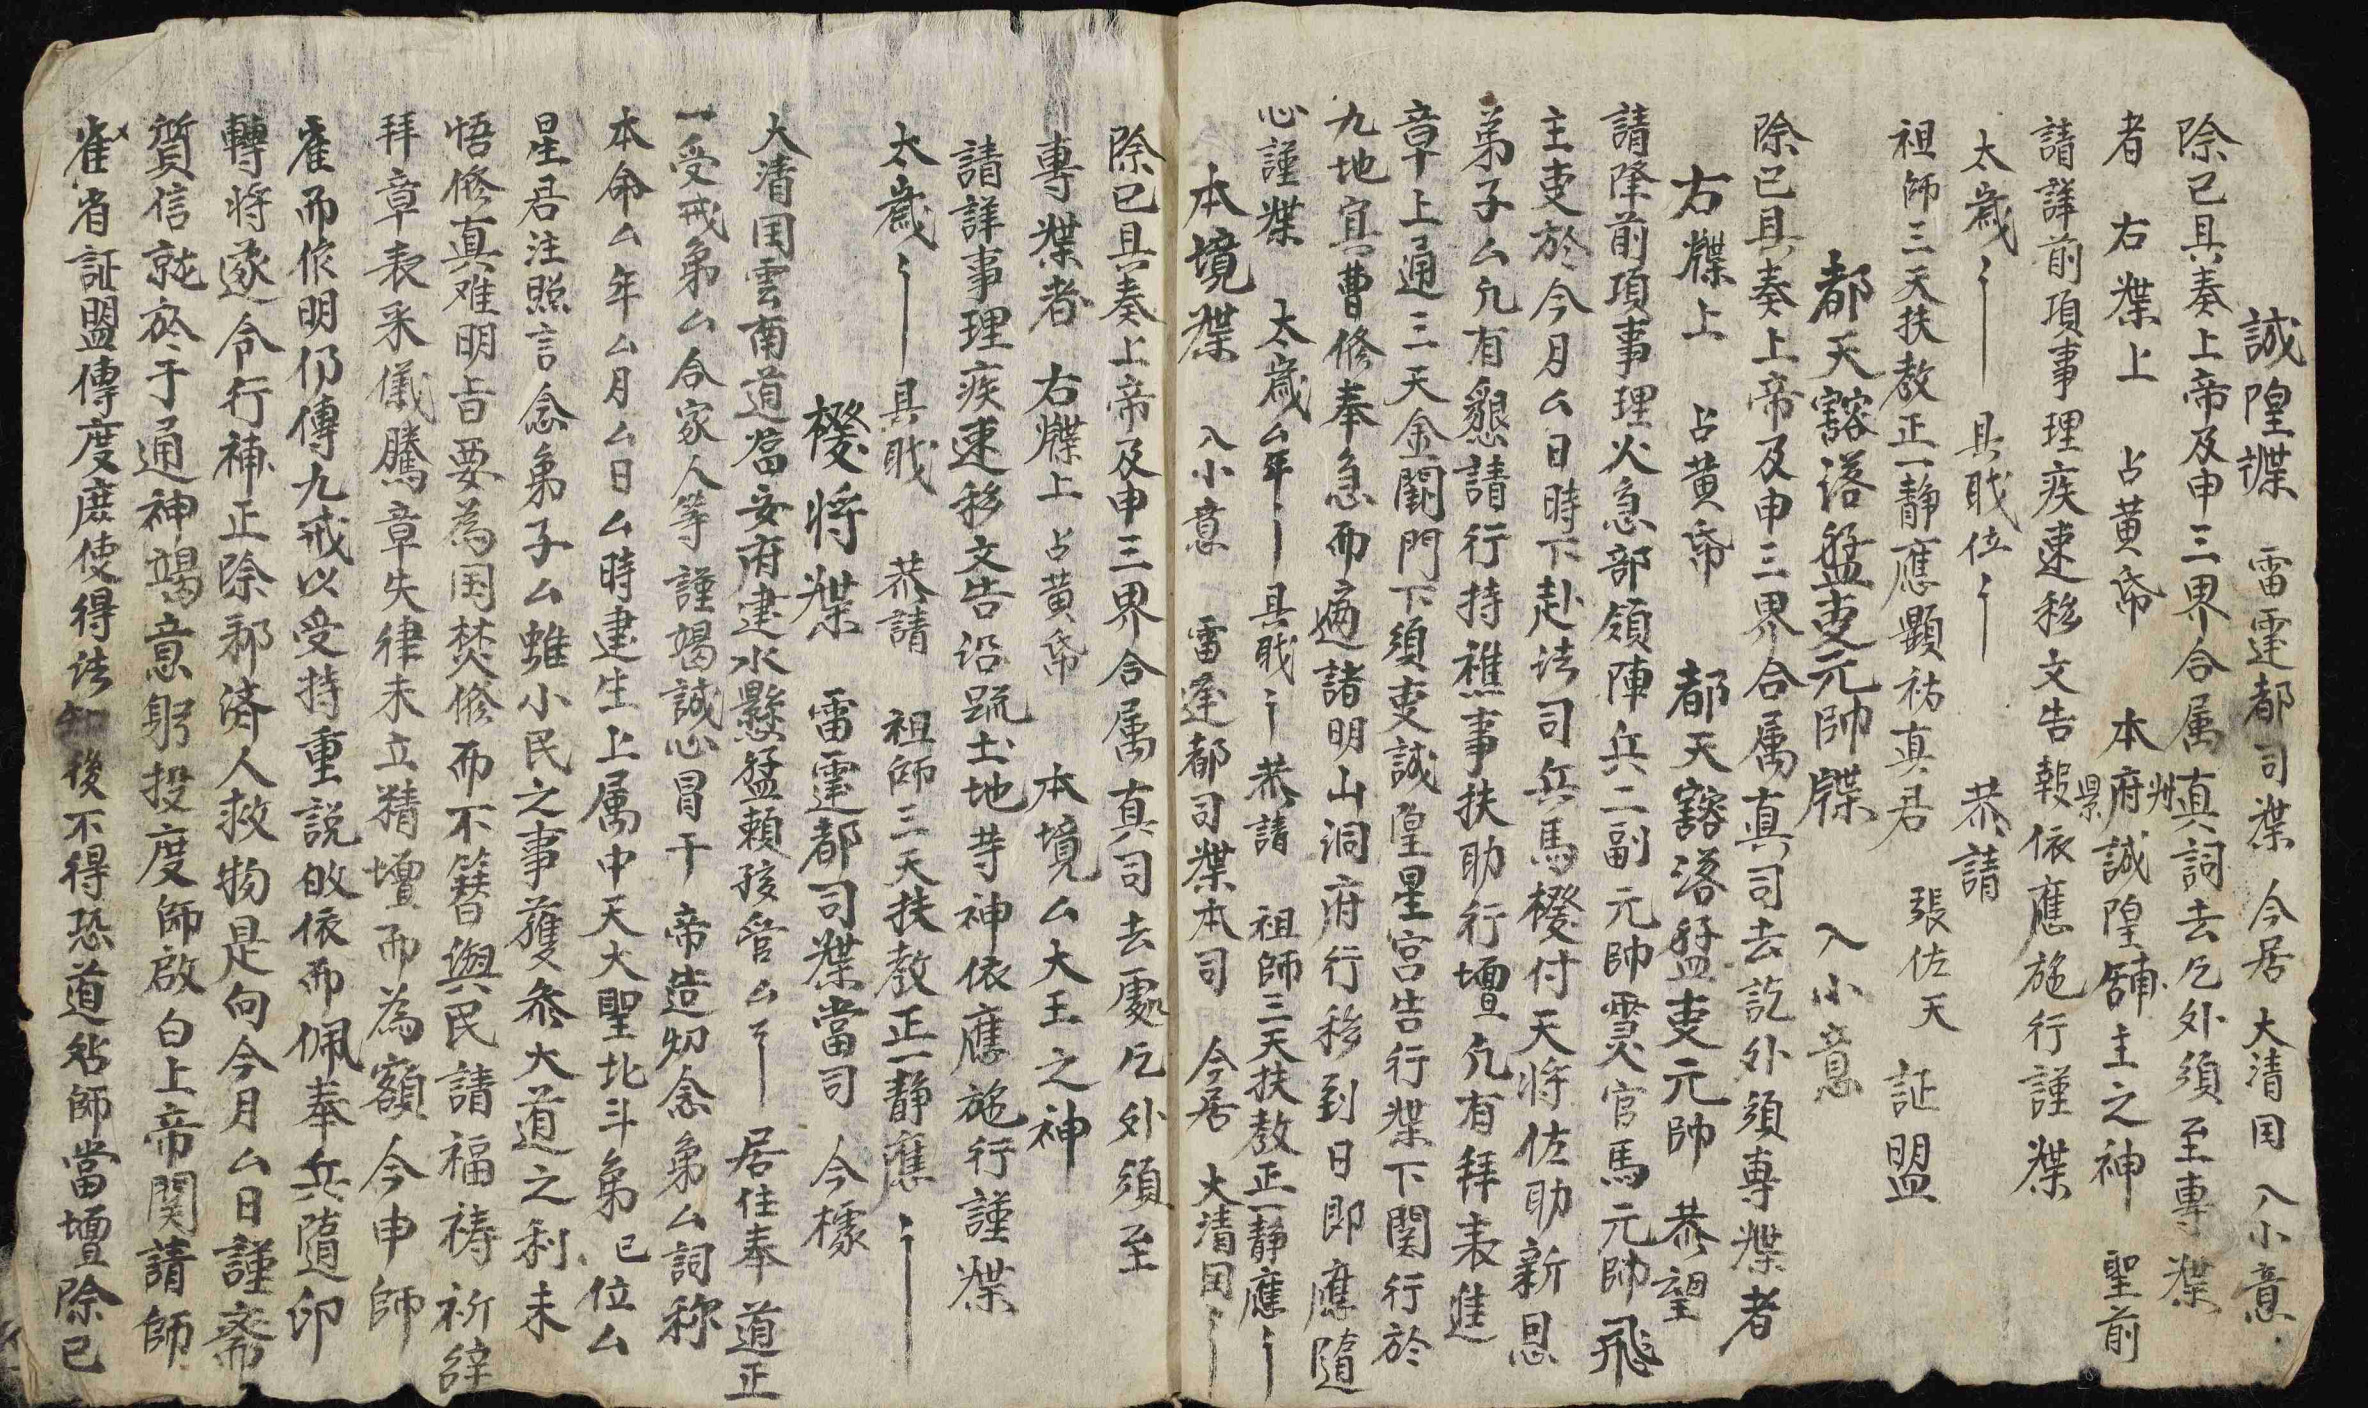 誠隍牒　雷霆都司牒　今居　大清囯　入小意
除已具奏上帝及申三界合属真詞去乞外須至專牒
者　右牒上　占黄帋　本府州縣誠隍輔主之神　聖前
請詳前項事理疾速移文告報依應施行謹牒
太歲　具戝位　恭請
祖師三天扶教正一靜應顯祐真君　張佐天　証盟
都天豁落猛吏元帥牒　入小意
除已具奏上帝及申三界合属真司去訖外須專牒者
右牒上　占黄帋　都天豁落猛吏元帥　恭望
請降前項事理火急部領陣兵二副元帅霊官馬元帥飛
主吏於今月厶日時下赴法司兵馬橃付天将佐助新恩
弟子厶凢有懇請行持醮事扶助行壇凢有拜表進
章上通三天金闕門下須吏誠隍星宫告行牒下関行於
九地冥曹修奉急而遍諸明山洞府行移到日即應隨
心謹牒　太歲厶年　具戝　恭請　祖師三天扶教正一靜應
本境牒　入小意　雷霆都司牒本司　今居　大清囯
除已具奏上帝及申三界合属真司去處乞外須至
專牒者　右牒上　占黄帋　本境厶大王之神
請詳事理疾速移文告沿䟽土地䓁神依應施行謹牒
太歲　具戝　恭請　祖師三天扶教正一靜應
橃将牒　雷霆都司牒當司　今㨿
大清囯雲南道當安府建水縣猛頼孩管厶　居住奉　道正
一受戒弟厶合家人等謹竭誠心冒干　帝造切念弟厶詞称
本命厶年厶月厶日厶時建生上属中天大聖北斗弟已位厶
星君注照言念弟子厶雖小民之事獲叅大道之利未
悟修真难明旨要為国焚修而不簪與民請福祷祈辞
拜章表采儀騰章失律未立精壇而為額今申師
雀而依明仍傳九戒以受持重説皈依而佩奉兵隨印
轉将逐令行補正除邪済人救物是向今月厶日謹齋
質信就於于通神竭意躬投度師啟白上帝関請師
雀省証盟傳度庶使得法知後不得恐道告師當壇除已